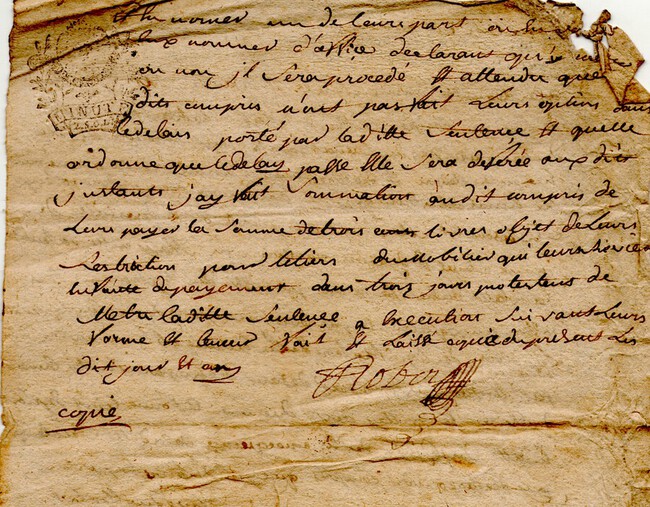 nommer un de leurs part ou
nommer d'office declarant qu'
ou non jl Sera procedé Et attendu que
dits compris n'ont pas fait Leurs option dans
Ledelais porté par laditte Sentence Et quelle
ordonne que ledelay passé Elle Sera deferée aux dits
jnstants jay fait Sommation audit compris de
Leurs payer la Somme detrois cens livres objet de Leurs
pour letiers dumobilier qui leurs
depayement dans trois jours protestens de
Metre laditte Sentence a Execution Suivant Leurs
forme Et teneur fait Et Laissé copie dupresent Les
dit jour Et an
Rober
copié
MINUT
2.SOL